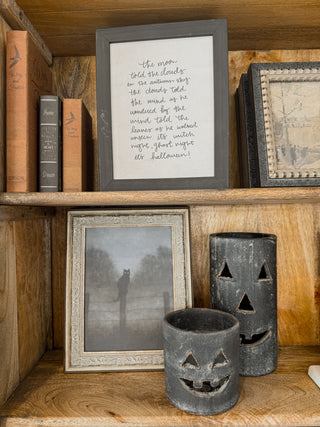 the moon
told the clouds
on the autumn sky
the clouds told
the wind as he
wandered by the
wind told the
leaves as he walked
unseen its witch
night, ghost night
its halloween!